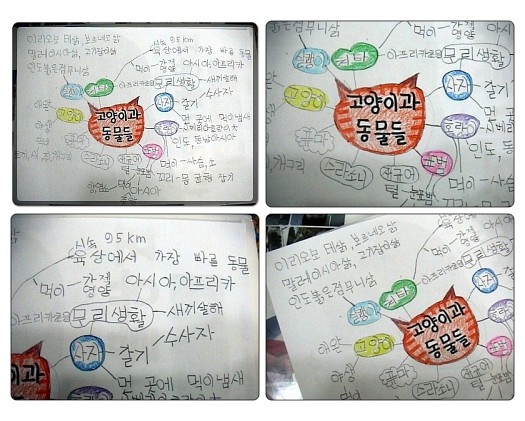 이리오모테삵, 보르네오삵
말레이시아삵, 고기잡이삵
인도붉은점무늬삵
시속 95km
육상에서 가장 바른 동물
먹이 가젤 영양 아시아, 아프리카
치타
아프리카 초원 무리생활 새끼살해
수사자
사자 갈기
애완 고양이
야생
고양이과
동물들
먼 곳에 먹이냄새
호랑이
인도, 동남아시아
표범
퓨마
스라소니
재규어
털
먹이 사슴, 소
꼬리-몸 균형 잡기
아시아
붉은점무늬삵
치타
먹이 가젤 영양
아프리카 초원 무리생활
사자 갈기
고양이
고양이과
동물들
호랑이
인도,
표범
퓨마
개구리
스라소니
재규어
털
먹이 사슴
꼬리-몸
시속 95km
육상에서 가장 바른 동물
먹이 가젤 영양 아시아, 아프리카
아프리카 초원 무리생활 새끼살해
수사자
사자 갈기
먼 곳에 먹이냄새
고양이과
이리오모테삵, 보르네오삵
말레이시아삵, 고기잡이삵
인도붉은점무늬삵
육상에서
먹이 가젤 영양
치타
아프리카 초원 무리생활
애완 고양이
야생
사자
고양이과
동물들
호랑이
표범
퓨마
스라소니
재규어
털